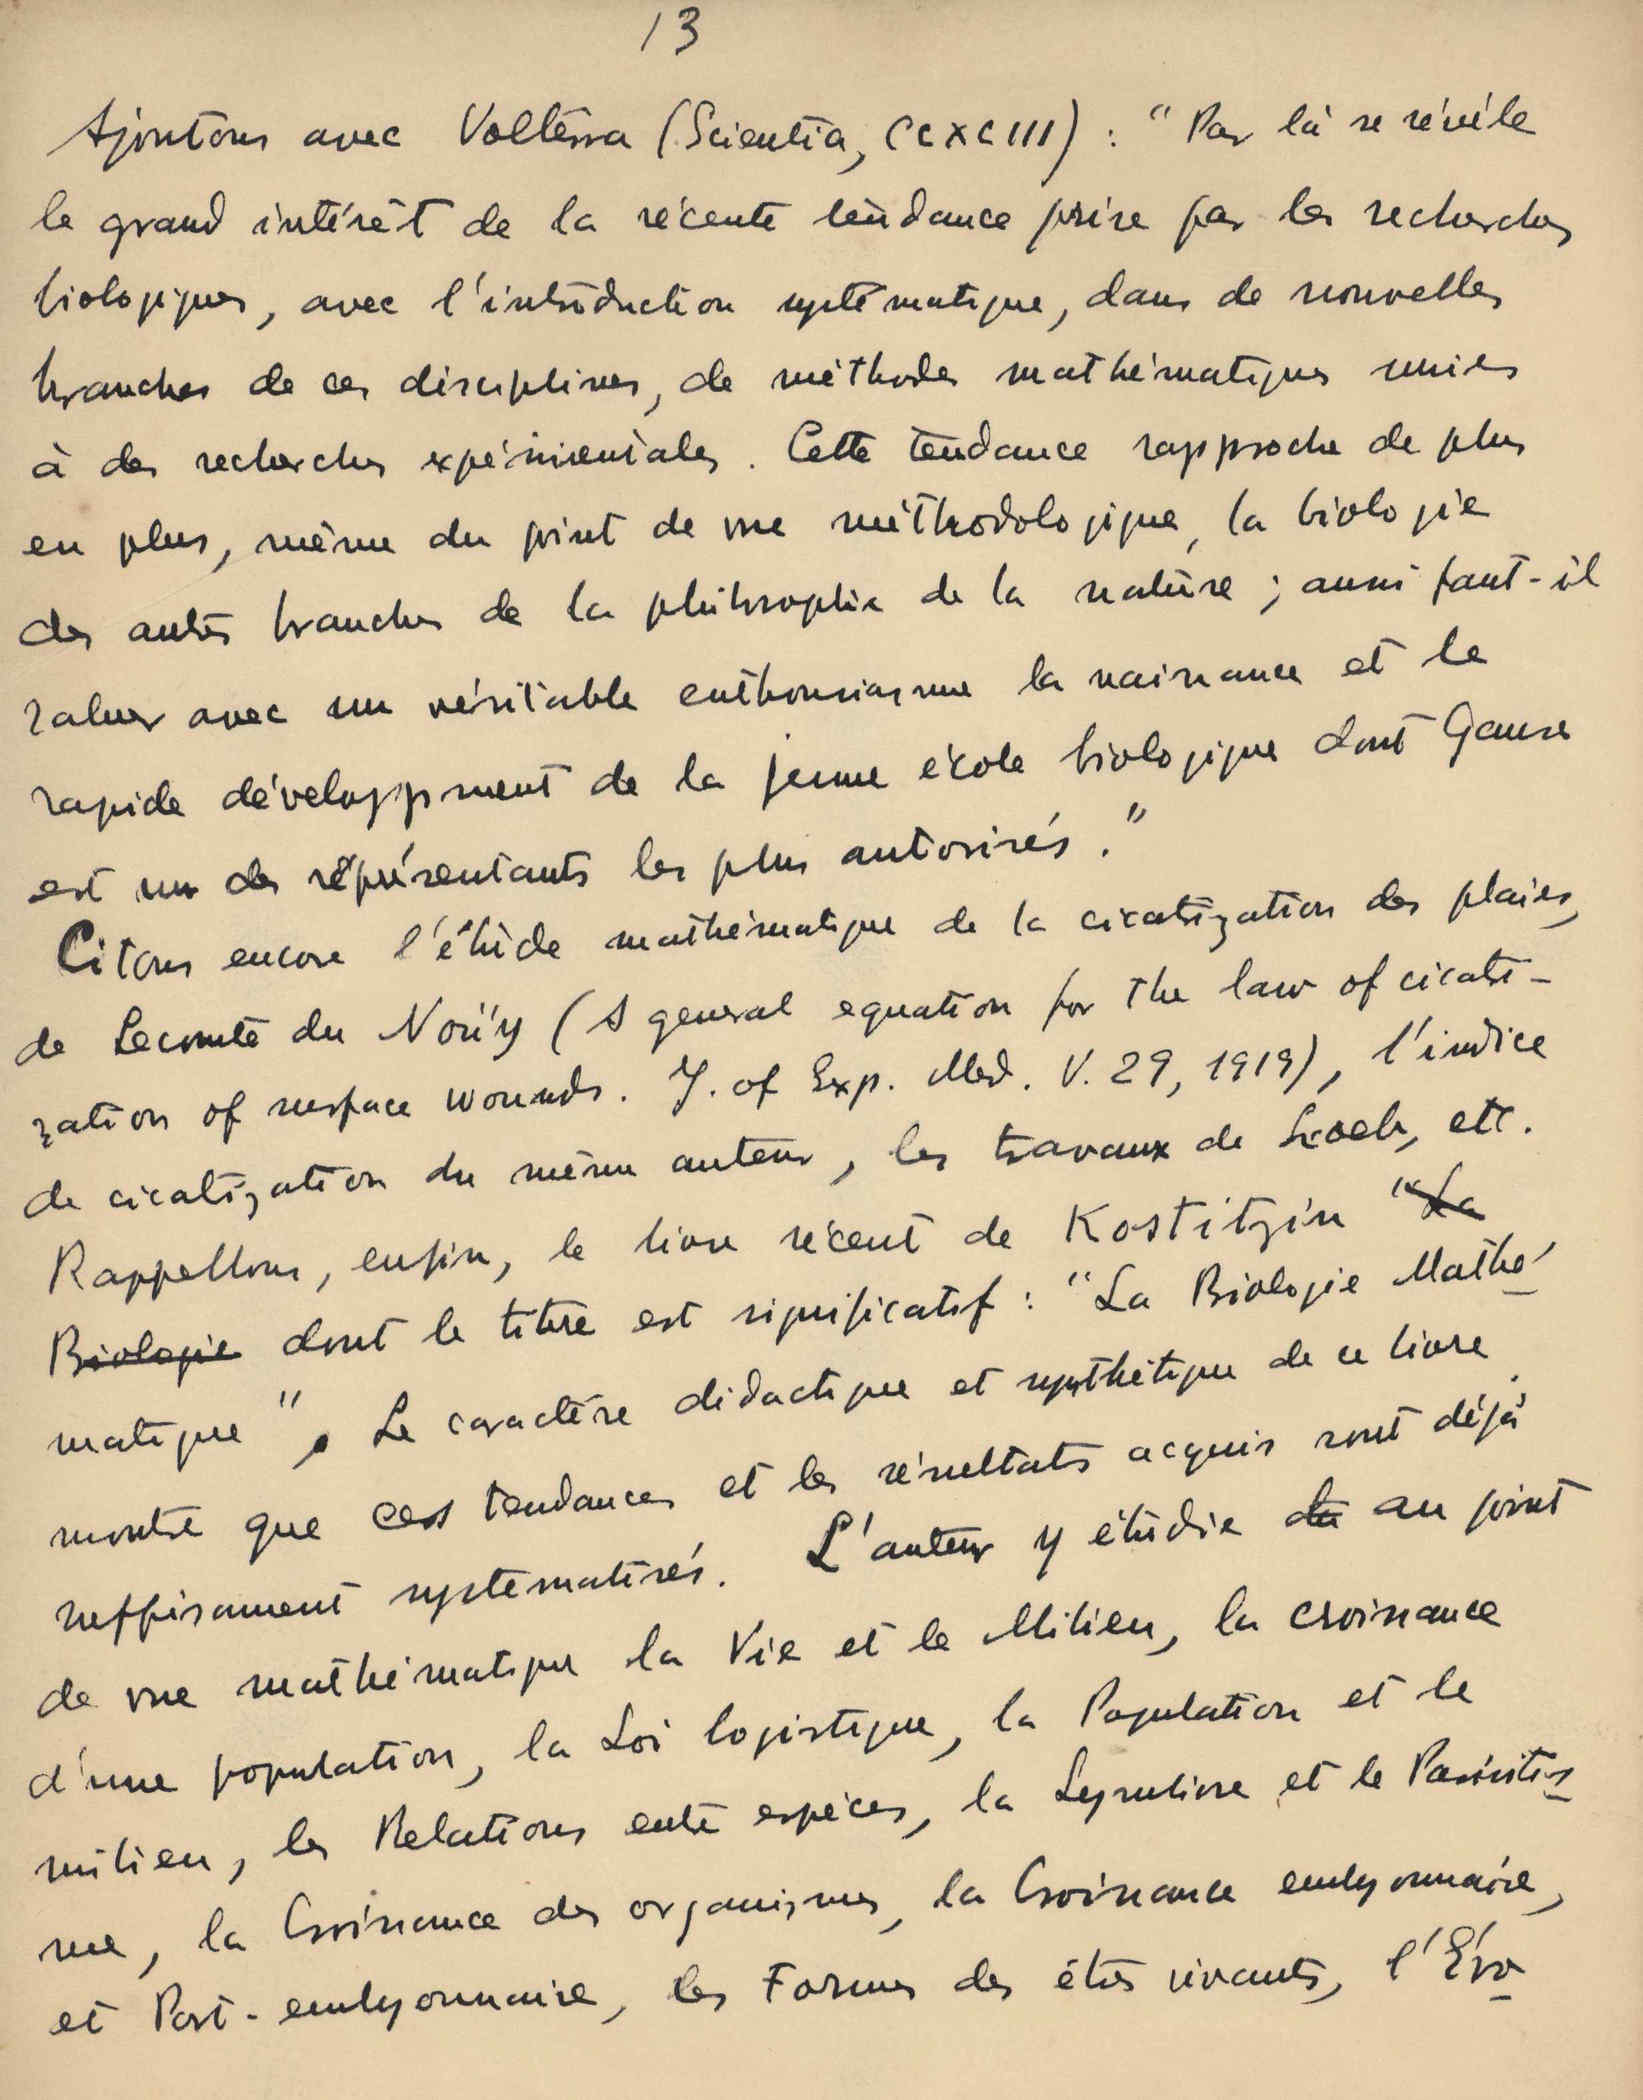 13
Ajoutons avec Volterra (Scientia, CCXCIII) : "Par là se révèle
le grand intérêt de la récente tendance prise par les recherches
biologiques, avec l'introduction systématique, dans de nouvelles
branches de ces disciplines, de méthodes mathématiques unies
à des recherches expérimentales. Cette tendance rapproche de plus
en plus, même du point de vue méthodologique, la biologie
des autres branches de la philosophie de la nature ; aussi faut-il
saluer avec un véritable enthousiasme la naissance et le
rapide développement de la jeune école biologique dont Gause
est un des représentants les plus autorisés."
Citons encore l'étude mathématique de la cicatrization des plaies,
de Lecomte du Noüy (A general equation for the law of cicatri-
zation of surface wounds. J. of Exp. Med. V. 29, 1919), l'indice
de cicatrization du même auteur, les travaux de Loeb, etc.
Rappellons, enfin, le livre récent de Kostitzin "La
Biologie dont le titre est significatif : "La Biologie Mathé
matique". Le caractère didactique et synthétique de ce livre
montre que ces tendances et les résultats acquis sont déjà
suffisament systématisés. L'auteur y étudie du au point
de vue mathématique la Vie et le Milieu, la croissance
d'une population, la Loi logistique, la Population et le
milieu, les Relations entre espèces, la Symbiose et le Parasitis
me, la Croissance des organismes, la Croissance embryonnaire,
et Post-embryonnaire, les Formes des êtres vivants, l'Évo